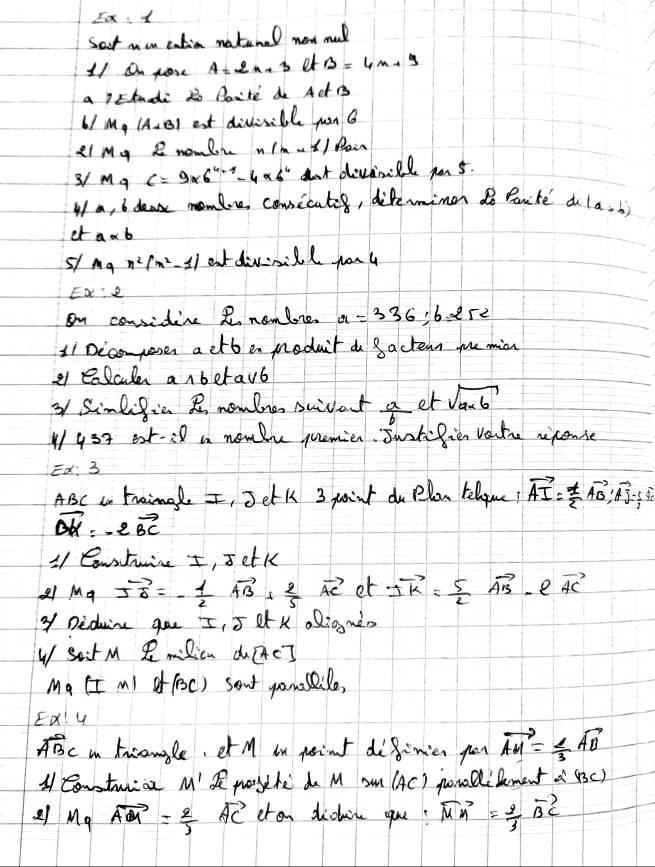 Ex : 1
Soit n un entier naturel non nul
1/ On pose A = 2n + 3 et B = 4n + 9
a / Etudié la Parité de A et B
b/ Mq (A+B) est divisible par 6
2/ Mq le nombre n(n+1) Pair
3/ Mq C = 9×6ⁿ⁺¹ - 4×6ⁿ est divisible par 5.
4/ a, b deux nombres consécutifs, déterminer la Parité de (a+b)
et a×b
5/ Mq n²(n²-1) est divisible par 4
Ex : 2
On considère les nombres a = 336 ; b = 252
1/ Décomposer a et b en produit de facteurs premier
2/ Calculer a∧b et a∨b
3/ Simlifier les nombres suivant a/b et √a×b
4/ 437 est-il un nombre premier. Justifier votre réponse
Ex : 3
ABC un traingle I, J et K 3 point du Plan telque : AI = 1/2 AB ; AJ =
BK = -2 BC
1/ Construire I, J et K
2/ Mq IJ = -1/2 AB + 2/5 AC et IK = 5/2 AB - 2 AC
3/ Déduire que I, J et K alignés
4/ Soit M le milieu de [AC]
Mq (IM) et (BC) sont parallèles
Ex : 4
ABC un triangle . et M un point définier par AM = 2/3 AB
1/ Construire M' le projeté de M sur (AC) parallèlement à (BC)
2/ Mq AM' = 2/3 AC et on déduire que : MM' = 2/3 BC